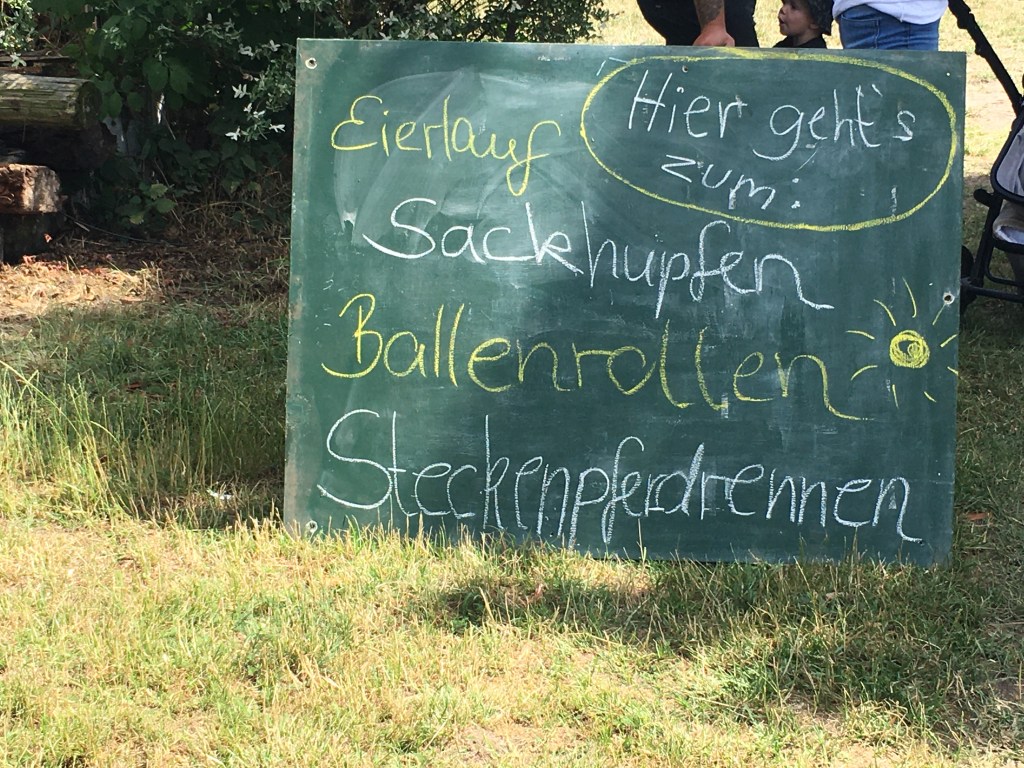 Hier geht's
zum:
Eierlauf
Sackhupfen
Ballenrollen
Steckenpferdrennen